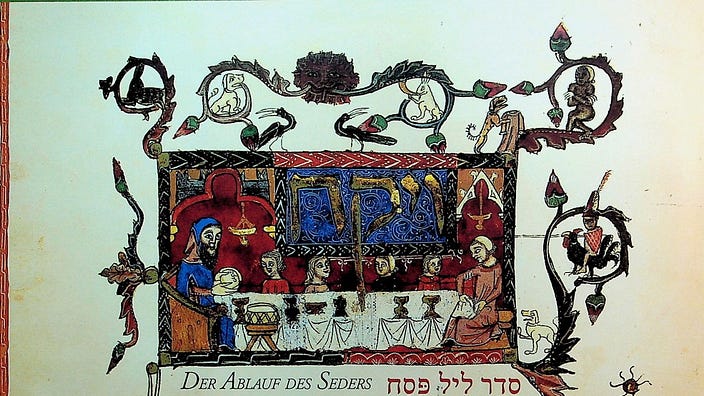 ויקח
DER ABLAUF DES SEDERS סדר ליל פסח